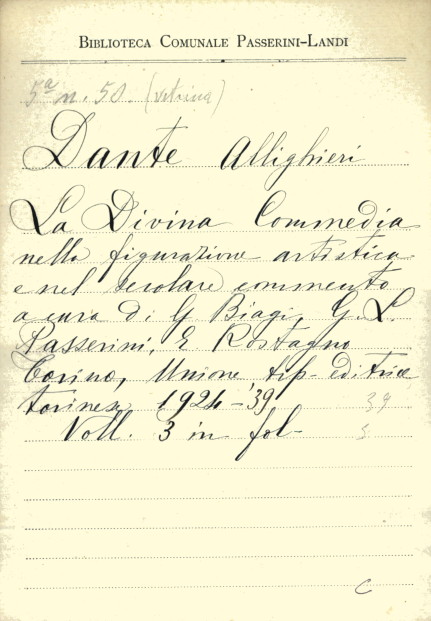 BIBLIOTECA COMUNALE PASSERINI-LANDI
5ª n. 50 (vetrina)
Dante Allighieri
La Divina Commedia
nella figurazione artistica
e nel secolare commento
a cura di G Biagi, G. L.
Passerini, E Rostagno
Torino, Unione tip-editrice
torinese 1924-'39
39
Voll. 3 in fol-
3
C